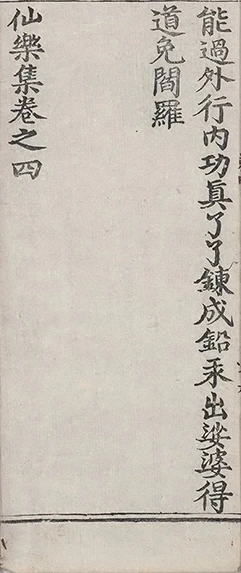 能過外行內功眞了了鍊成鉛汞出娑婆得
道免閻羅
仙樂集卷之四